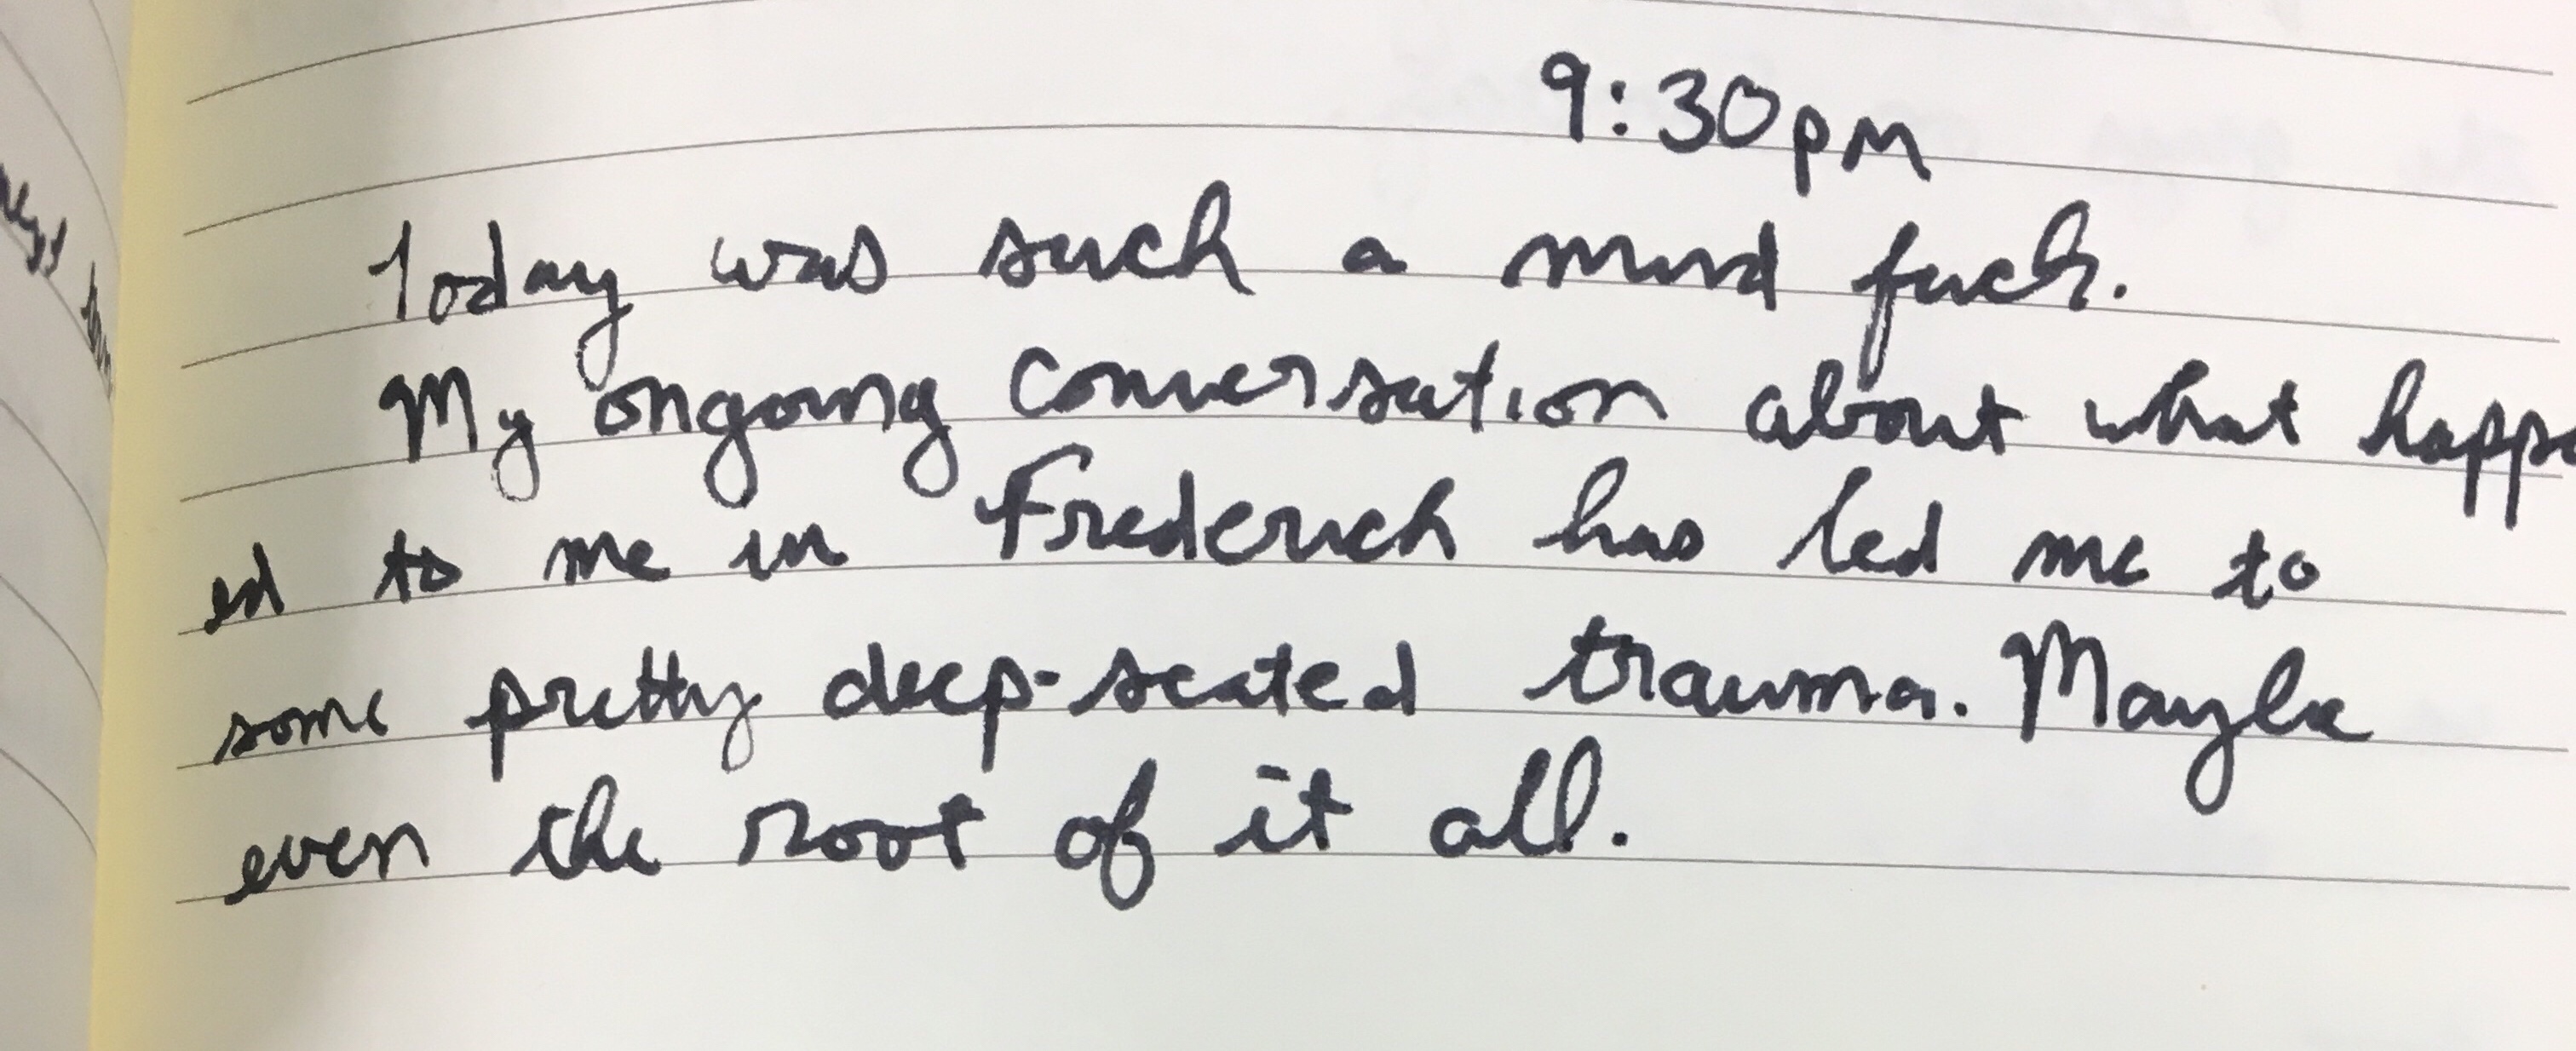 9:30pm
Today was such a mind fuck.
My ongoing conversation about what happ
ed to me in Frederick has led me to
some pretty deep-seated trauma. Maybe
even the root of it all.